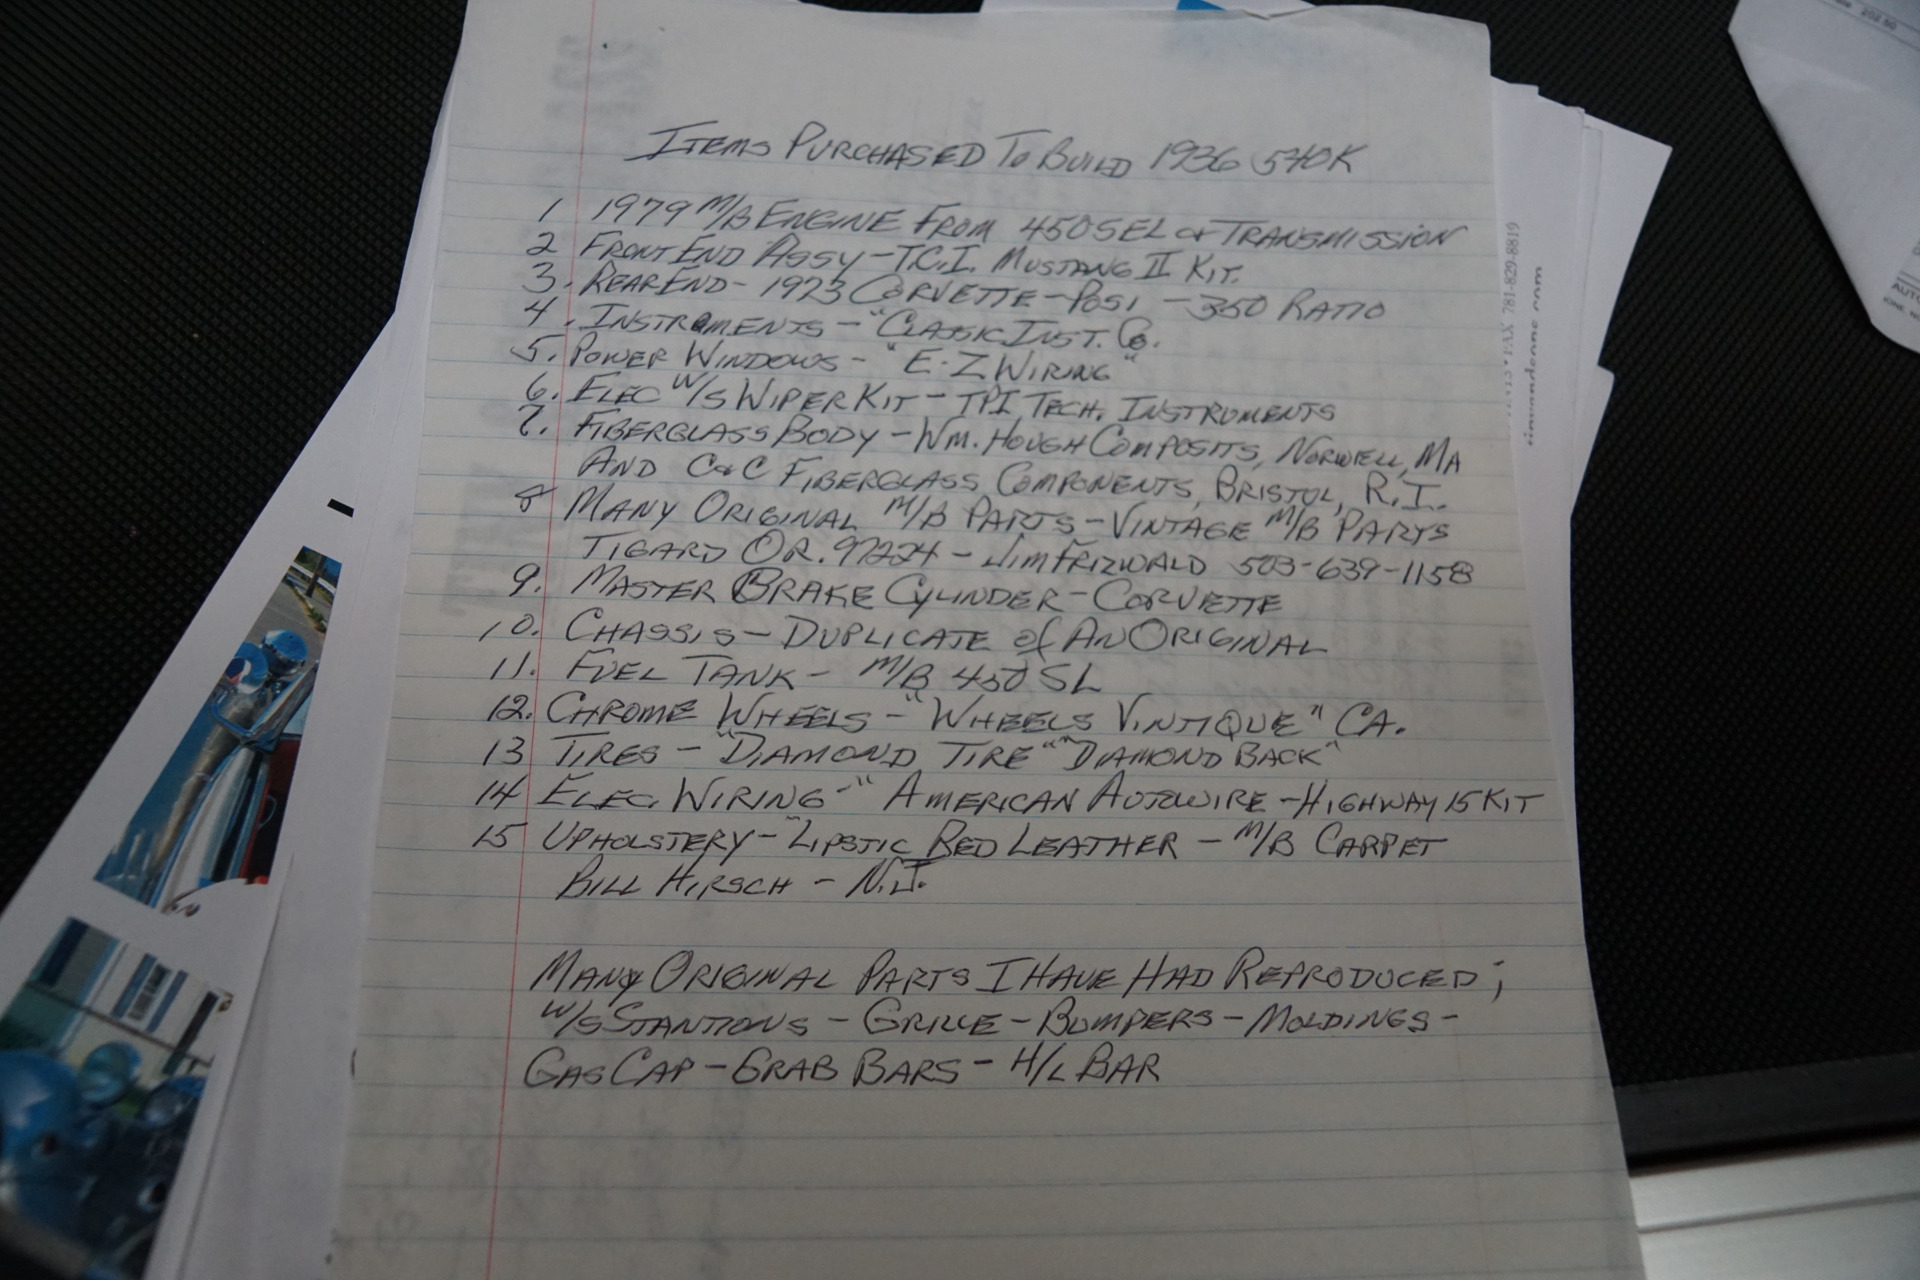 ITEMS PURCHASED TO BUILD 1936 540K
1 1979 M/B ENGINE FROM 450SEL & TRANSMISSION
2 FRONT END ASSY - T.C.I. MUSTANG II KIT.
3. REAR END - 1973 CORVETTE - POSI - 350 RATIO
4. INSTRUMENTS - "CLASSIC INST. CO.
5. POWER WINDOWS - "E-Z WIRING"
6. ELEC W/S WIPER KIT - TPI TECH. INSTRUMENTS
7. FIBERGLASS BODY - WM. HOUGH COMPOSITS, NORWELL, MA
AND C&C FIBERGLASS COMPONENTS, BRISTOL, R.I.
8 MANY ORIGINAL M/B PARTS - VINTAGE M/B PARTS
TIGARD OR. 97224 - JIM FRIZWALD 503-639-1158
9. MASTER BRAKE CYLINDER - CORVETTE
10. CHASSIS - DUPLICATE of AN ORIGINAL
11. FUEL TANK - M/B 450 SL
12. CHROME WHEELS - "WHEELS VINTIQUE" CA.
13 TIRES - "DIAMOND TIRE" "DIAMOND BACK"
14 ELEC. WIRING - "AMERICAN AUTOWIRE - HIGHWAY 15 KIT
15 UPHOLSTERY - "LIPSTIC RED LEATHER - M/B CARPET
BILL HIRSCH - N.J.
MANY ORIGINAL PARTS I HAVE HAD REPRODUCED;
W/S STANTIONS - GRILLE - BUMPERS - MOLDINGS -
GAS CAP - GRAB BARS - H/L BAR
FAX 781-829-8819